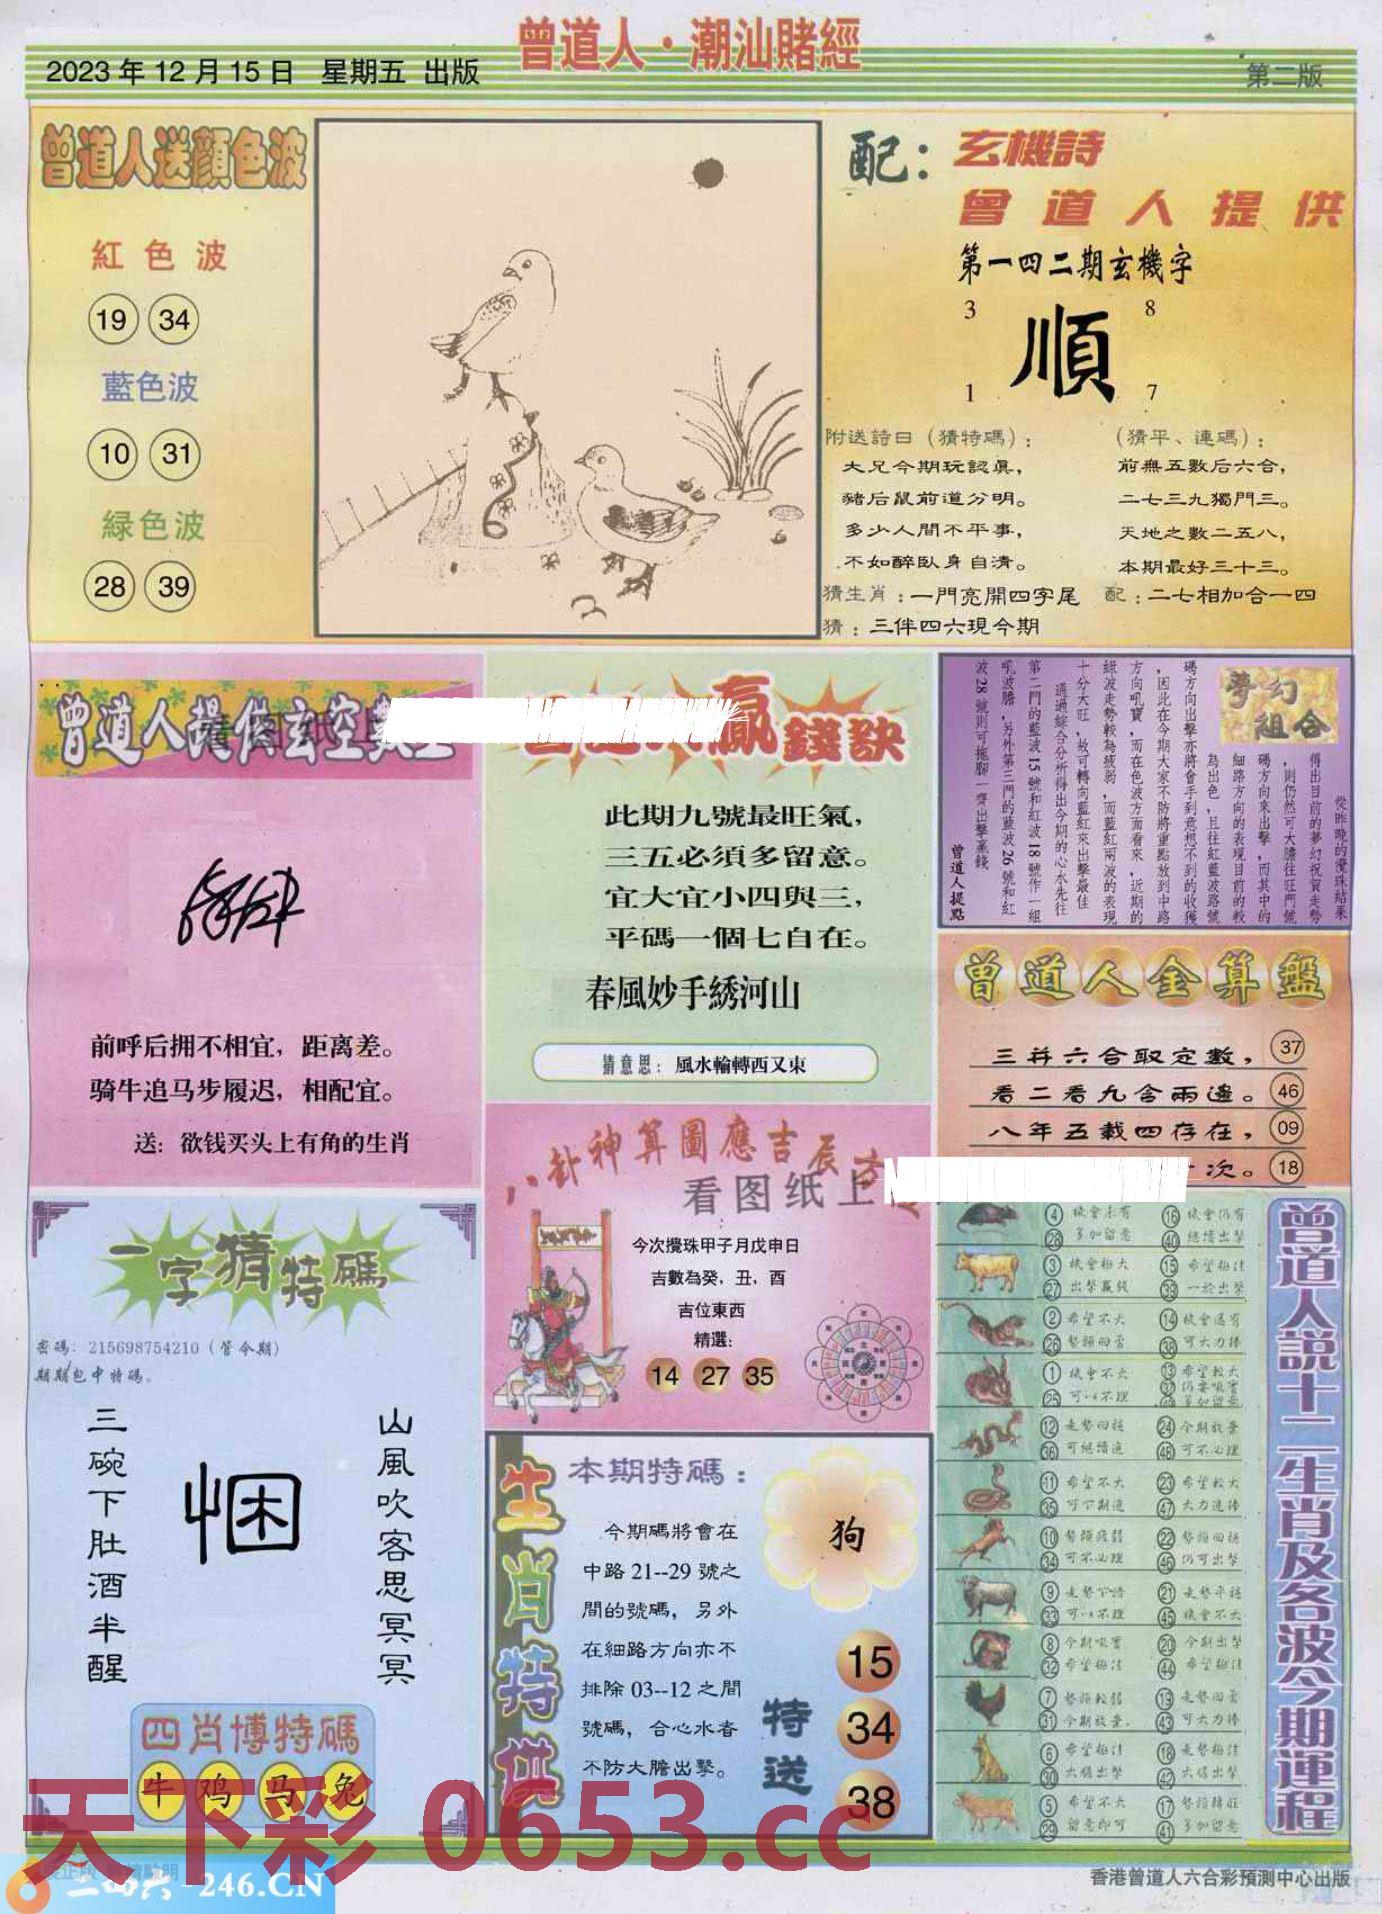 曾道人·潮汕賭經
2023年12月15日 星期五 出版
第二版
曾道人送顏色波
紅色波
19 34
藍色波
10 31
緑色波
28 39
配：玄機詩
曾道人提供
第一四二期玄機字
3 8
順
1 7
附送詩曰（猜特碼）：
大兄今期玩認真，
豬后鼠前道分明。
多少人間不平事，
不如醉臥身自清。
猜生肖：一門亮開四字尾
猜：三伴四六現今期
（猜平、連碼）：
前無五數后六合，
二七三九獨門三。
天地之數二五八，
本期最好三十三。
配：二七相加合一四
曾道人提供玄空
前呼后拥不相宜，距离差。
骑牛追马步履迟，相配宜。
送：欲钱买头上有角的生肖
贏錢訣
此期九號最旺氣，
三五必須多留意。
宜大宜小四與三，
平碼一個七自在。
春風妙手綉河山
猜意思：風水輪轉西又東
夢幻組合
從昨晚的攪珠結果
得出目前的夢幻祝賀走勢
，則仍然可大膽往旺門號
碼方向來出擊，而其中的
細路方向的表現目前的較
為出色，且往紅藍波路號
碼方向出擊亦將會手到意想不到的收獲
，因此在今期大家不防將重點放到中路
方向吼寶，而在色波方面看來，近期的
緑波走勢較為疲弱，而藍紅兩波的表現
十分大旺，故可轉向藍紅來出擊最佳
通過綜合分析得出今期的心水先往
第二門的藍波15號和紅波18號作一組
吼波膽，另外第三門的藍波26號和紅
波28號則可拖腳一齊出擊贏錢
曾道人提點
曾道人金算盤
三并六合取定數， 37
看二看九含兩邊。 46
八年五載四存在， 09
次。 18
八卦神算圖應吉辰方
看图纸上
今次攪珠甲子月戊申日
吉數為癸，丑，酉
吉位東西
精選：
14 27 35
一字猜特碼
密碼：215698754210（管今期）
期期包中特碼。
三碗下肚酒半醒
悃
山風吹客思冥冥
四肖博特碼
牛 鸡 马 兔
生肖特供
本期特碼：
今期碼將會在
中路21--29號之
間的號碼，另外
在細路方向亦不
排除03--12之間
號碼，合心水者
不防大膽出擊。
狗
特送
15
34
38
曾道人説十二生肖及各波今期運程
4 機會未有 16 機會仍有
28 多加留意 40 繼續出擊
3 機會極大 15 希望極佳
27 出擊贏錢 39 一於出擊
2 希望不大 14 機會還有
26 勢頭回落 38 可大力捧
1 機會不大 13 希望較大
25 可以不理
12 走勢回穩 24 今期放棄
36 可繼續追 48 可不必理
11 希望不大 23 希望較大
35 可下期追 47 大力追捧
10 勢頭疲弱 22 勢頭回穩
34 可不必理 46 仍可出擊
9 走勢下滑 21 走勢平穩
33 可以不理 45 機會不大
8 今期吸寶 20 今期出擊
32 希望極佳 44 希望極佳
7 勢頭較弱 19 走勢回落
31 今期放棄 43 可大力捧
6 希望極佳 18 走勢極佳
30 大膽出擊 42 大膽出擊
5 希望不大 17 勢頭轉旺
29 留意即可 41 多加留意
天下彩 0653.cc
二四六-246.CN
香港曾道人六合彩預測中心出版